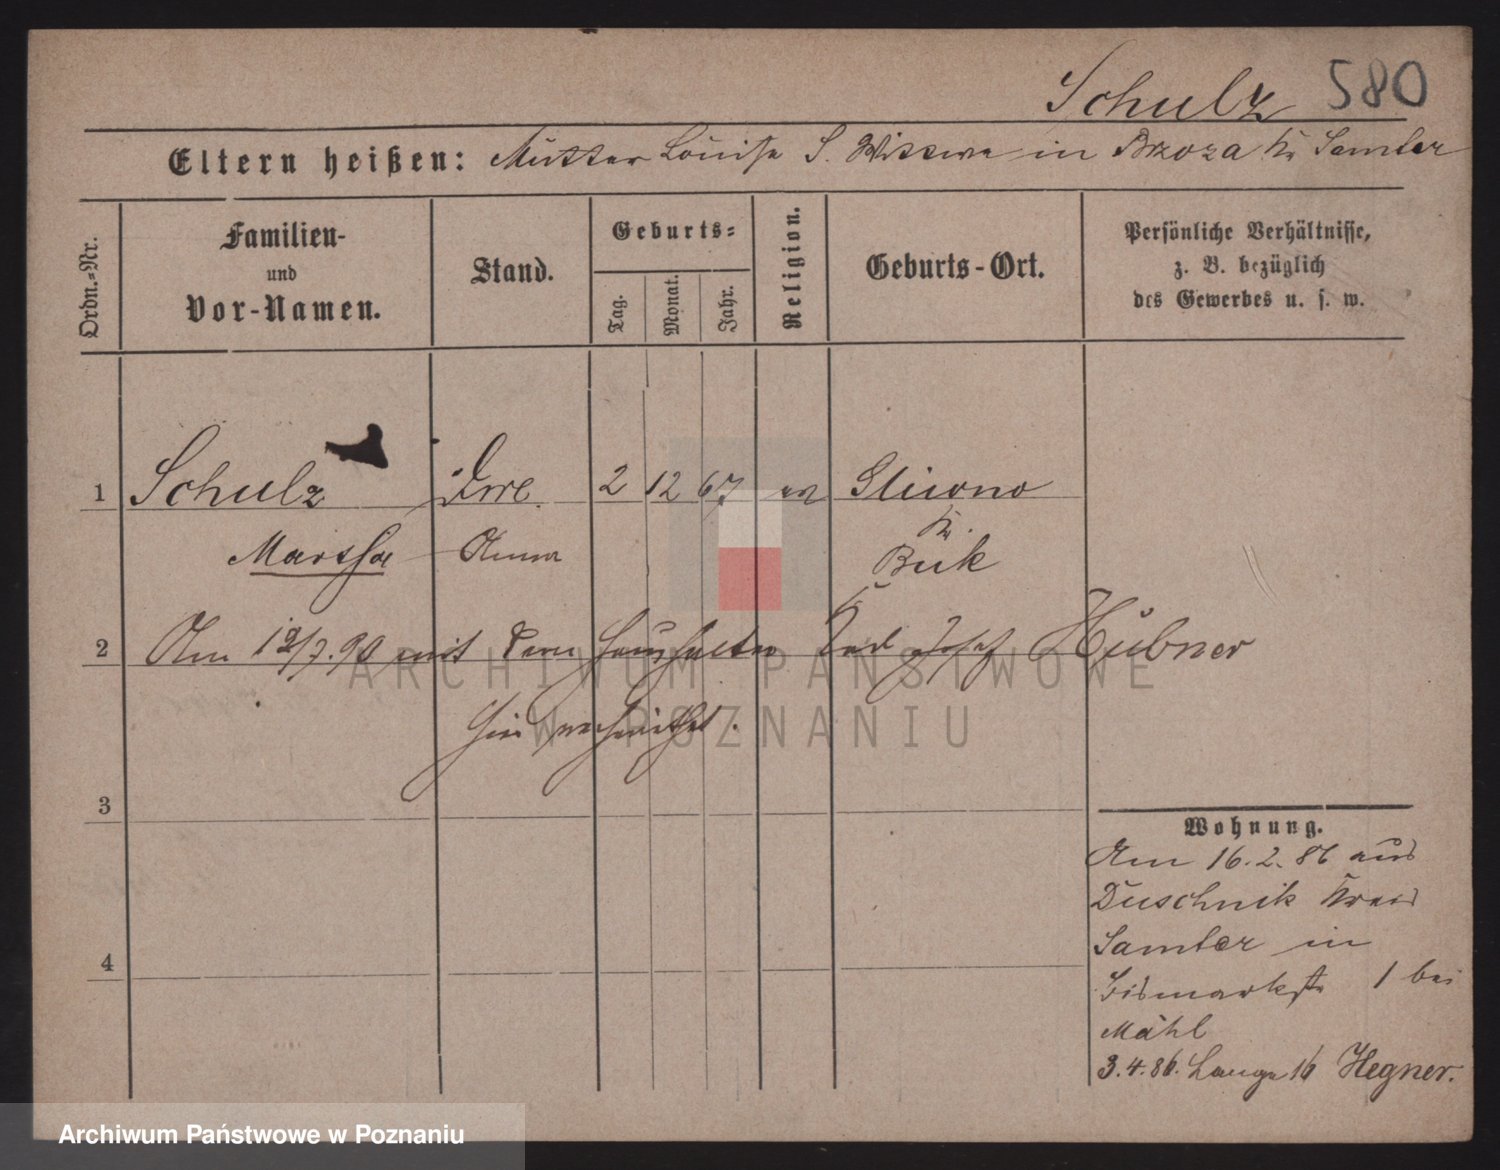 Schulz 580
Eltern heißen: Mutter Louise S. Wittwe in Brzoza Kr Samter
Ordn.-Nr.
Familien-
und
Vor-Namen.
Stand.
Geburts-
Tag.
Monat.
Jahr.
Religion.
Geburts-Ort.
Persönliche Verhältnisse,
z. B. bezüglich
des Gewerbes u. s. w.
1 Schulz 2 12 67 ev
Kr.
Martha Anna Buk
2 Am 12/7.90 mit dem Haushalter Josef Hübner
hier verheirathet.
3
4
Wohnung.
Am 16.2.86 aus
Duschnik Kreis
Samter in
Bismarkstr 1 bei
Mähl
3.4.86. Lange 16 Hegner.
ARCHIWUM PAŃSTWOWE
W POZNANIU
Archiwum Państwowe w Poznaniu